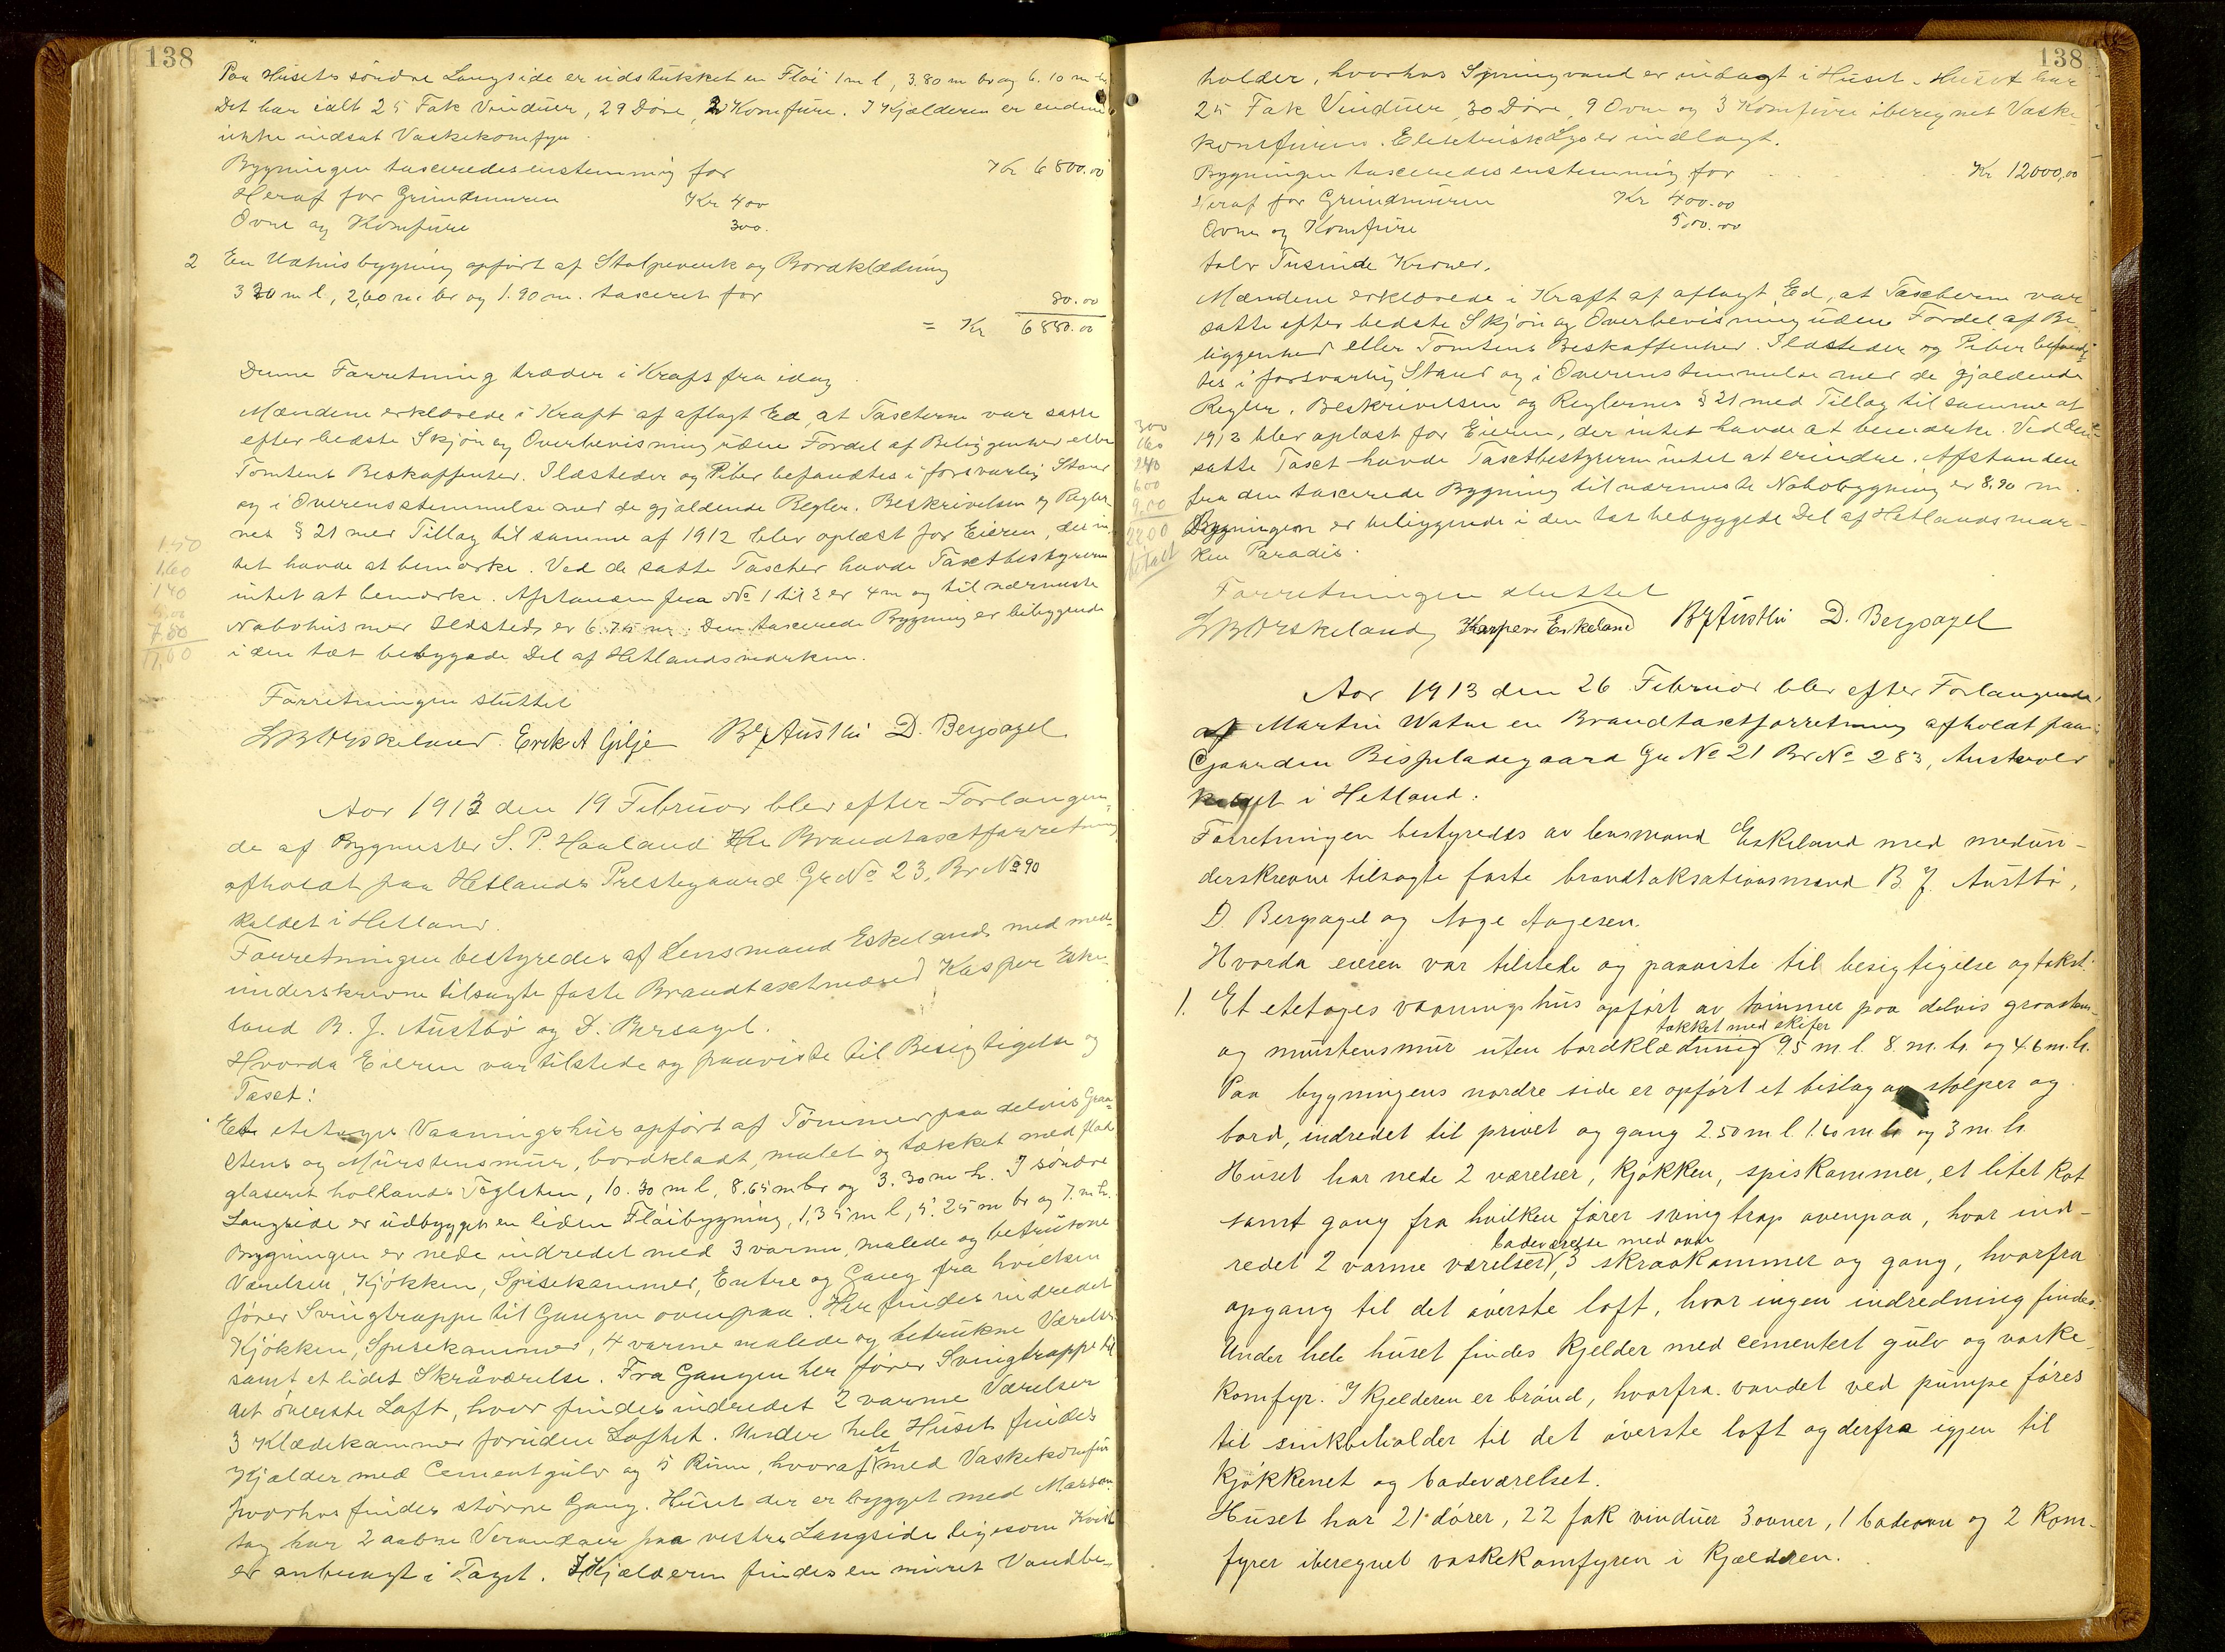 138
Paa Husets söndre Langside er udstukket en Flöi 1 m l, 3.80 m br og 6.10 m h
Det har ialt 25 Fak Vinduer, 29 Döre, 2 Komfure. I Kjælderen er endnu
ikke indsat Vaskekomfyr
Bygningen taxeredes enstemmig for Kr 6800.00
Heraf for Grundmuren Kr 400
Ovne og Komfure 300.
2 En Udhusbygning opført af Stolpeverk og Bordklædning
3 30 m l, 2,60 m br og 1.90 m. taxeret for 80.00
= Kr 6880.00
Denne Forretning træder i Kraft fra idag
Mændene erklærede i Kraft af aflagt Ed, at Taxterne var satte
efter bedste Skjön og Overbevisning uden Fordel af Beliggenhed eller
Tomtens Beskaffenhed. Ildsteder og Piber befandtes i forsvarlig Stand
og i Overensstemmelse med de gjældende Regler. Beskrivelsen og Regler-
nes § 21 med Tillæg til samme af 1912 blev oplæst for Eieren, der in-
tet havde at bemærke. Ved de satte Taxter havde Taxtbestyreren
intet at bemærke. Afstanden fra No 1 til 2 er 4 m og til nærmeste
Nabohus med Ildsted er 6.75 m. Den taxerede Bygning er beliggende
i den tæt bebyggede Del af Hetlandsmarken.
1.50
1.60
1.40
7.50
17,00
Forretningen sluttet
LB Eskeland. Erik A Gilje B J Austbö D. Bergsagel
Aar 1913 den 19 Februar blev efter Forlangen-
de af Bygmester S. P. Haaland Hle Brandtaxtforretning
afholdt paa Hetlands Prestegaard Gr No 23, Br No 90
kaldet i Hetland.
Forretningen bestyredes af Lensmand Eskeland med med-
underskrevne tilsagte faste Brandtaxtmænd Kasper Eske-
land B. J. Austbö og D. Bersagel.
Hvorda Eieren var tilstede og paaviste til Besigtigelse og
Taxt:
Et etetages Vaaningshus opført af Tömmer paa delvis Graa-
stens og Murstensmur, bordklædt, malet og tækket med flat
glaseret hollandsk Taglsten, 10.30 m l, 8.65 m br og 3.30 m h. I söndre
Langside er udbygget en liden Flöibygning, 1,35 m l, 5.25 m br og 7. m h.
Bygningen er nede indredet med 3 varme, malede og betrukne
Værelser, Kjökken, Spisekammer, Entre og Gang fra hvilken
fører Svingtrappe til Gangen ovenpaa. Her findes indredet
Kjökken, Spisekammer, 4 varme malede og betrukne Værelser
samt et lidet Skråværelse. Fra Gangen her fører Svingtrappe til
det överste Loft, hvor findes indredet 2 varme Værelser
3 Klædekammer foruden Loftet. Under hele Huset findes
Kjælder med Cementgulv og 5 Rum, hvoraf et med Vaskekomfur
hvorhos findes større Gang. Huset der er bygget med Mansar-
tag har 2 aabne Verandaer paa vestre Langside ligesom Kvist
er anbragt i Taget. I Kjælderen findes en muret Vandbe-
138
holder, hvorhos Springvand er indlagt i Huset. Huset har
25 Fak Vinduer, 30 Döre, 9 Ovne og 3 Komfure iberegnet Vaske-
komfuren. Elektrisk Lys er indlagt.
Bygningen taxeredes enstemmig for Kr 12000,00
Heraf for Grundmuren Kr 400.00
Ovne og Komfure 500.00
tolv Tusinde Kroner.
Mændene erklærede i Kraft af aflagt Ed, at Taxterne var
satte efter bedste Skjön og Overbevisning uden Fordel af Be-
liggenhed eller Tomtens Beskaffenhed. Ildsteder og Piber befand-
tes i forsvarlig Stand og i Overensstemmelse med de gjældende
Regler. Beskrivelsen og Reglernes § 21 med Tillæg til samme af
1912 blev oplæst for Eieren, der intet havde at bemærke. Ved den
satte Taxt havde Taxtbestyreren intet at erindre. Afstanden
fra den taxerede Bygning til nærmeste Nabobygning er 8.90 m.
Bygningen er beliggende i den tæt bebyggede Del af Hetlandsmar-
ken Paradis.
300
160
240
600
9.00
22.00
betalt
Forretningen sluttet
LB Eskeland, Kasper Eskeland B J Austbö D. Bergsagel
Aar 1913 den 26 Februar blev efter Forlangende
af Martin Watne en Brandtaxtforretning afholdt paa
Gaarden Bispeladegaard Gr No 21 Br No 283, Austvold
kaldet i Hetland.
Forretningen bestyredes av lensmand Eskeland med medun-
derskrevne tilsagte faste brandtaksationsmænd B. J. Austbö,
D. Bergsagel og Aage Aagesen.
Hvorda eieren var tilstede og paaviste til besigtigelse og takst:
1. Et etetages vaaningshus opført av tømmer paa delvis graastens-
og murstensmur uten bordklædning tækket med skifer 9.5 m. l. 8. m. br. og 4.6 m. h.
Paa bygningens nordre side er opført et bislag av stolper og
bord, indredet til privet og gang 2.50 m l. 1.60 m br og 3 m h.
Huset har nede 2 værelser, kjøkken, spiskammer, et litet kot
samt gang fra hvilken fører svingtrap ovenpaa, hvor ind-
redet 2 varme værelser, badeværelse med ovn 3 skraakammer og gang, hvorfra
opgang til det øverste loft, hvor ingen indredning findes.
Under hele huset findes kjelder med cementert gulv og vaske-
komfyr. I kjelderen er brønd, hvorfra vandet ved pumpe føres
til sinkbeholder til det øverste loft og derfra igjen til
kjøkkenet og badeværelset.
Huset har 21 dører, 22 fak vinduer 3 ovner, 1 badeovn og 2 kom-
fyrer iberegnet vaskekomfyren i kjælderen.